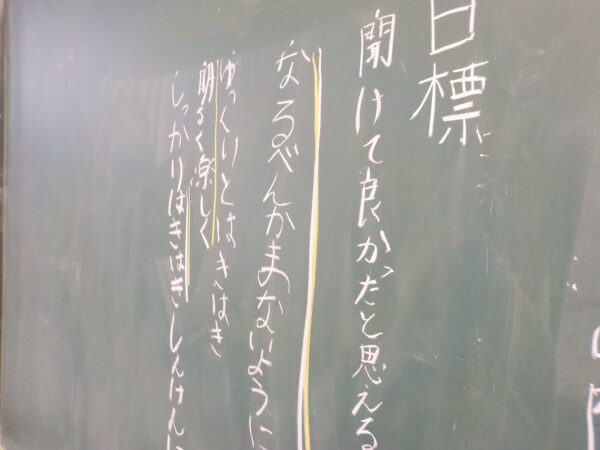 目標
聞けて良かたと思える
なるべんかまないように
ゆっくりとはきはき
明るく楽しく
しっかりはきはきしんけんに